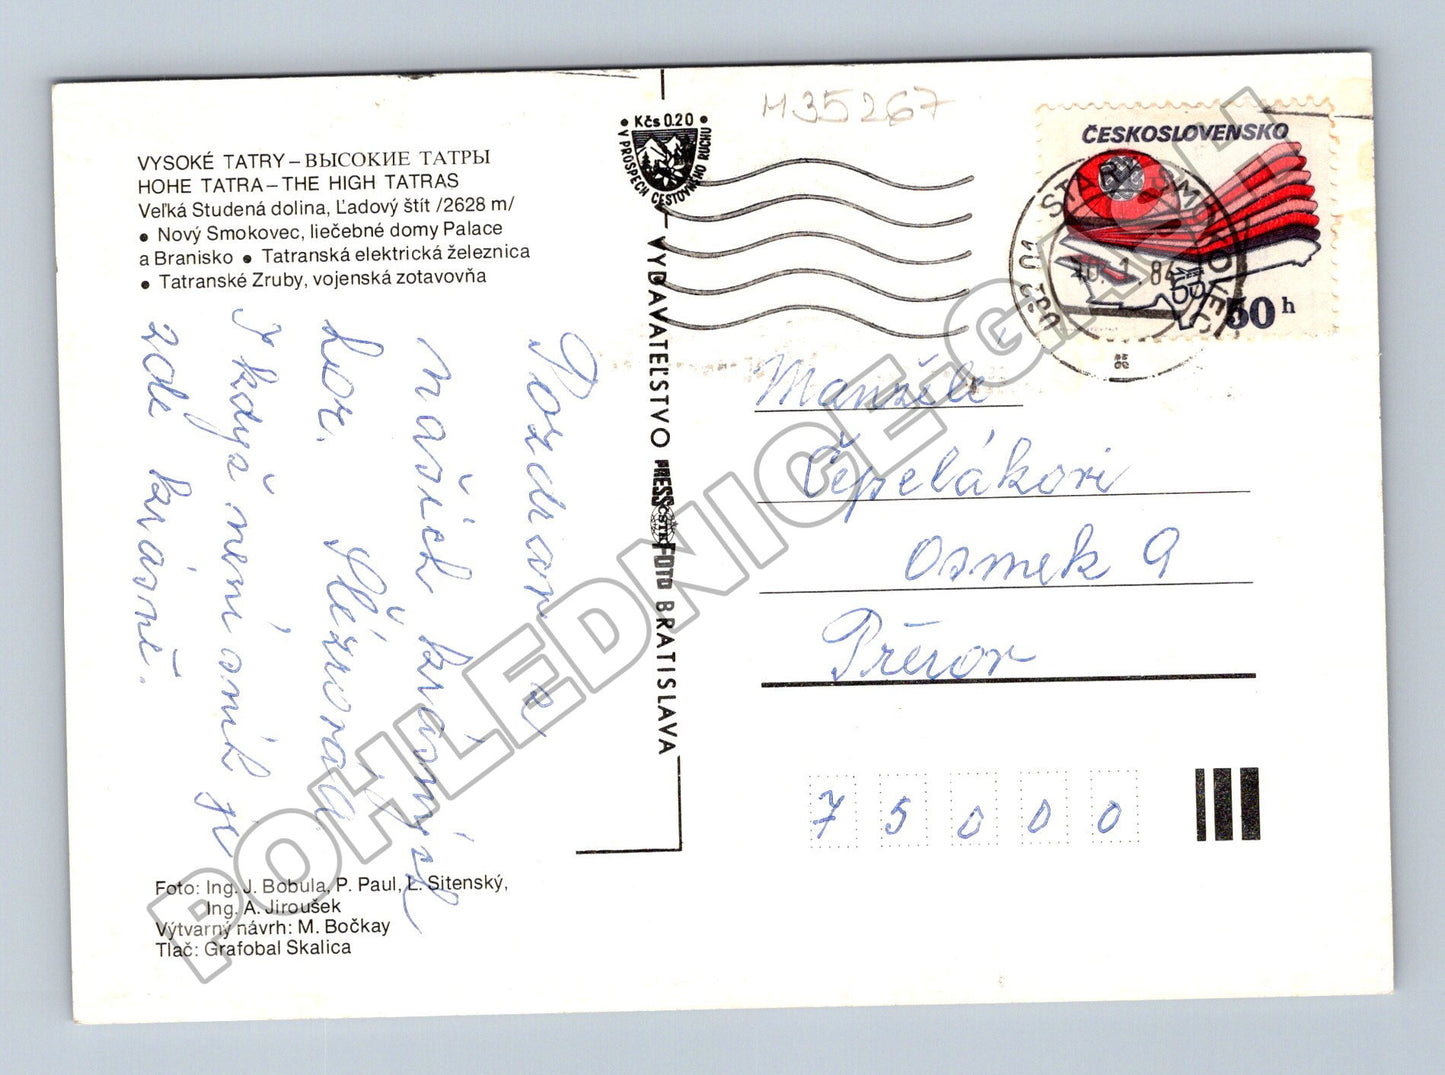 VYSOKÉ TATRY – ВЫСОКИЕ ТАТРЫ
HOHE TATRA – THE HIGH TATRAS
Veľká Studená dolina, Ľadový štít /2628 m/
• Nový Smokovec, liečebné domy Palace
a Branisko • Tatranská elektrická železnica
• Tatranské Zruby, vojenská zotavovňa
Pozdrav z
našich krásných
hor.
I když není sníh je
zde krásně.
Foto: Ing. J. Bobula, P. Paul, L. Sitenský,
Ing. A. Jiroušek
Výtvarný návrh: M. Bočkay
Tlač: Grafobal Skalica
• Kčs 0.20 •
V PROSPECH CESTOVNÉHO RUCHU
VYDAVATEĽSTVO PRESSFOTO BRATISLAVA
ČSTK
M35267
ČESKOSLOVENSKO
50 h
STARÝ SMOKOVEC
10.1.84
062 01
Manželé
Čepelákovi
Osmek 9
Přerov
75000
POHLEDNICE.GALERI